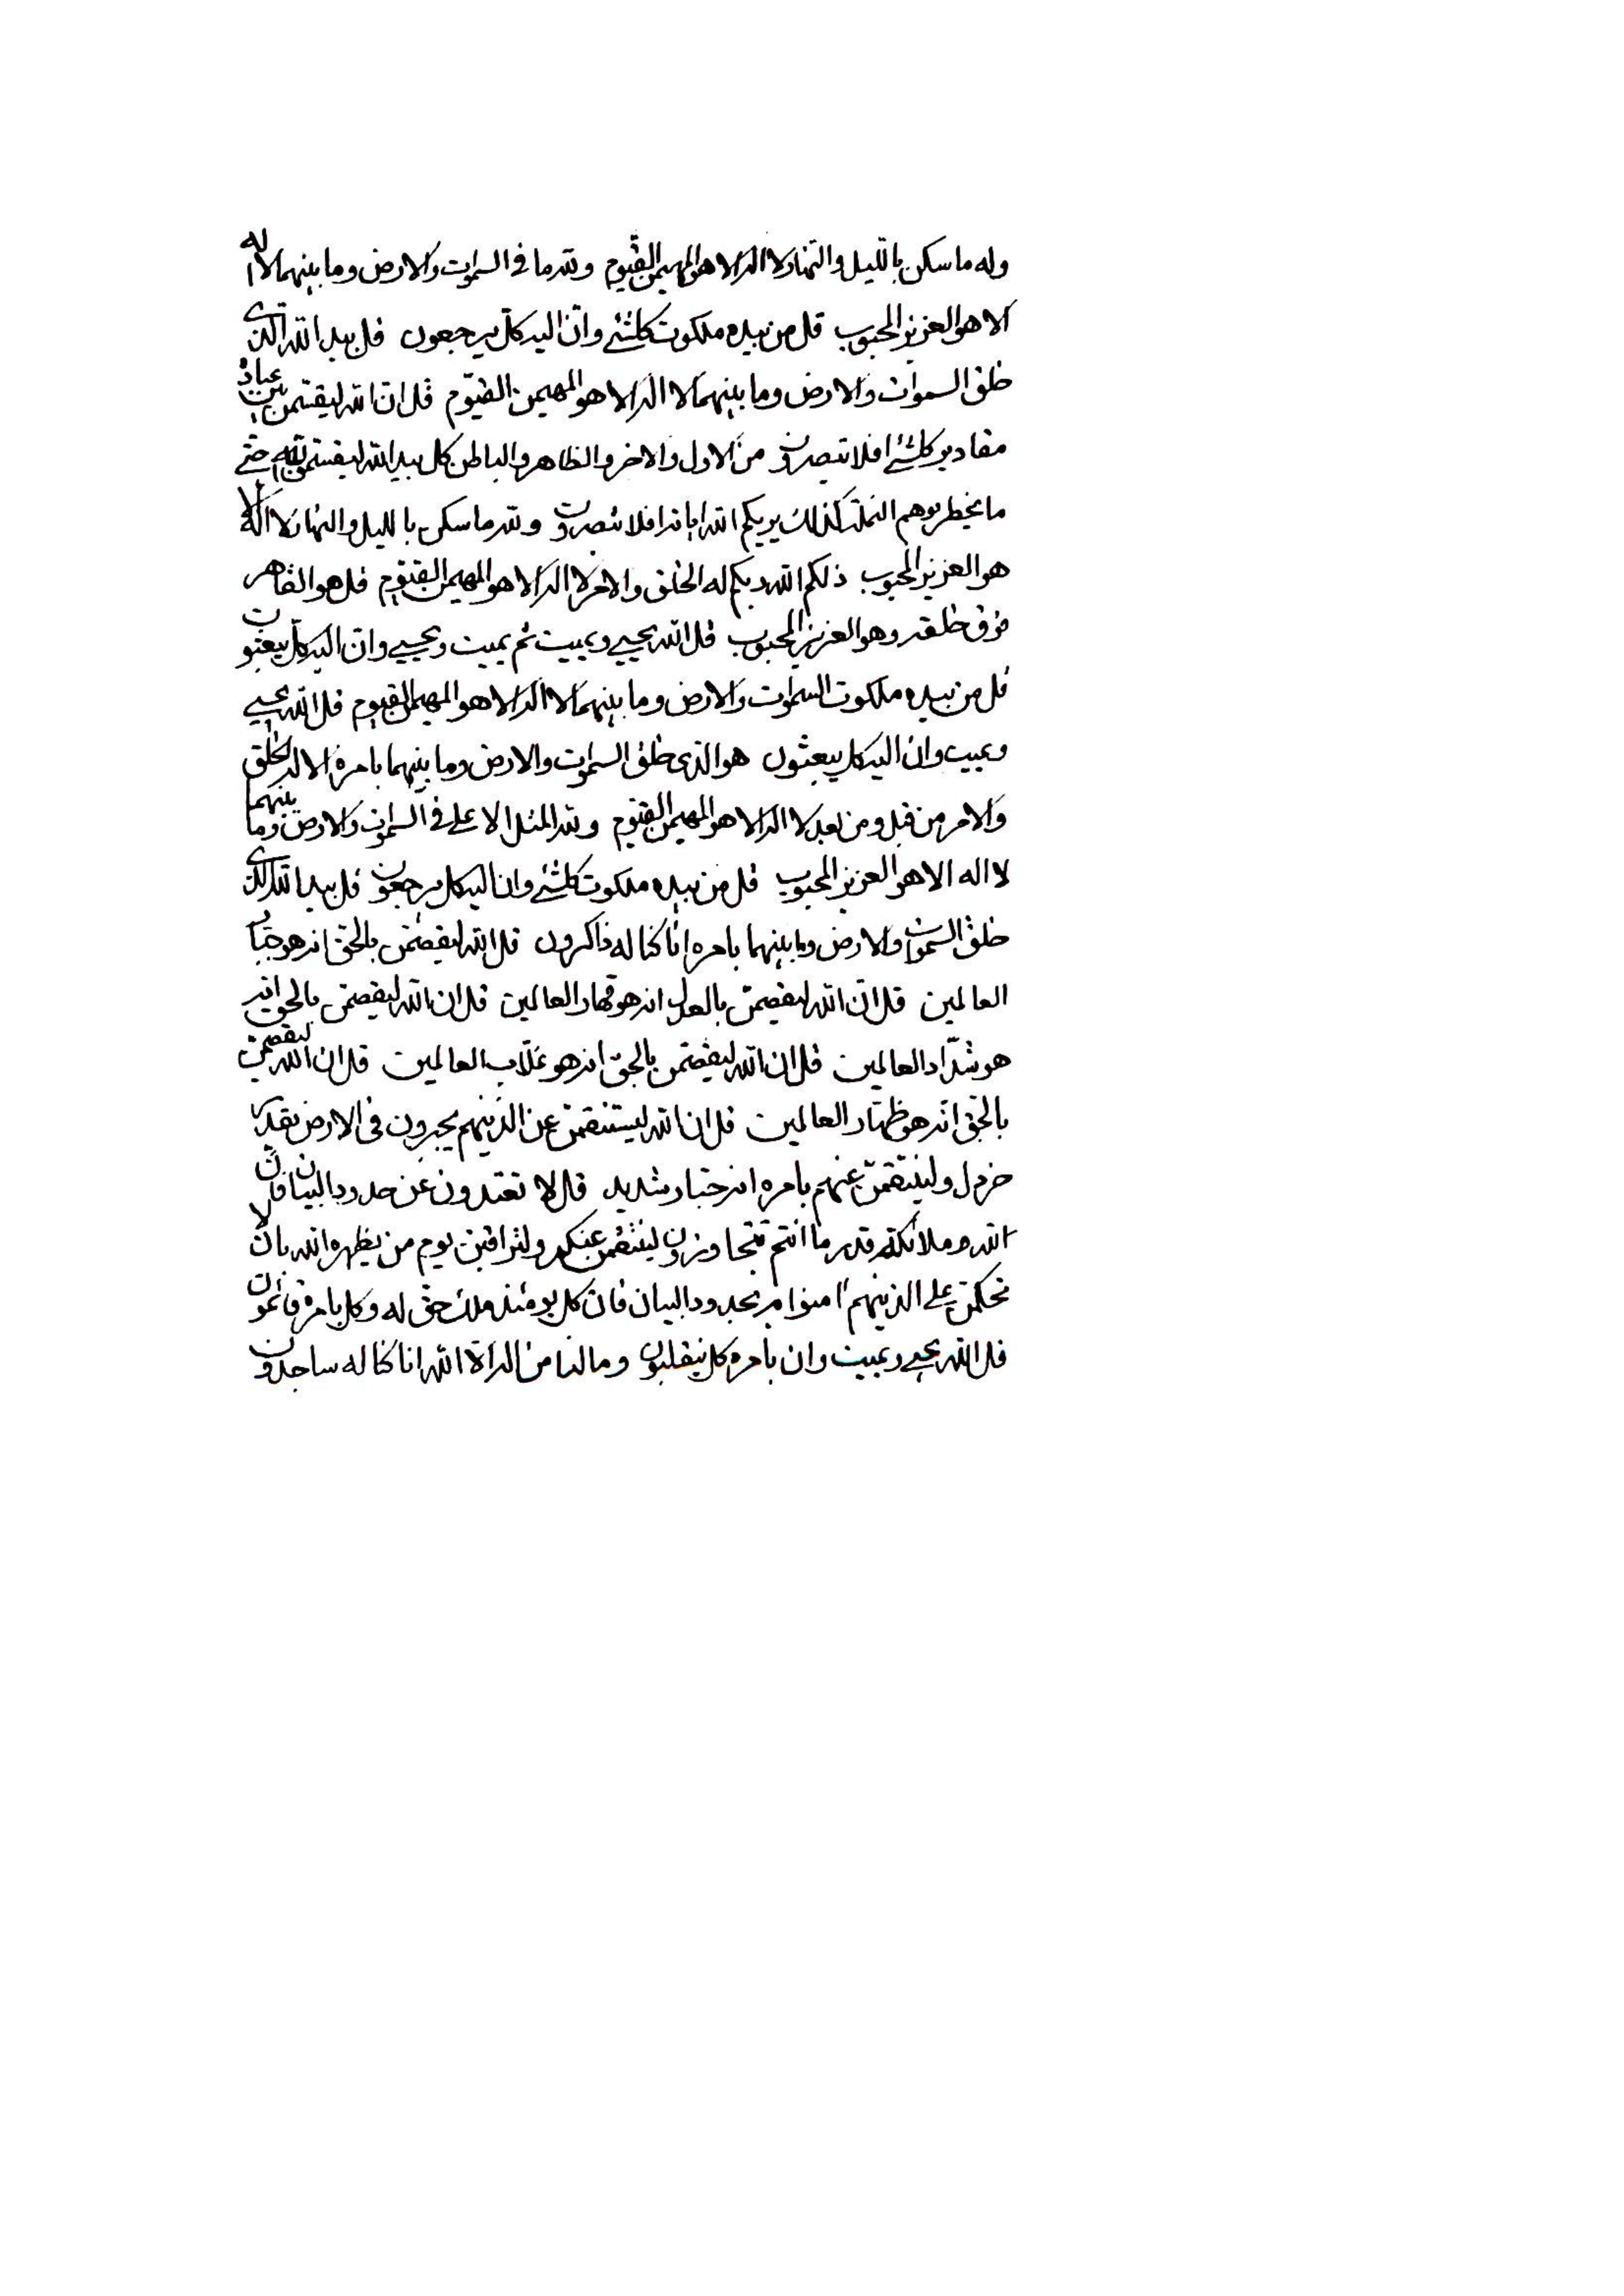 وله ما سكن بالليل والنهار لا اله الا هو المهيمن القيوم ولله ما في السموات والارض وما بينهما لا اله
الا هو العزيز المحبوب قل من بيده ملكوت كلشئ وان اليه كل يرجعون قل بيد الله الذى
خلق السموات والارض وما بينهما لا اله الا هو المهيمن القيوم قل ان الله ليقسمن بين عباده
مقادير كلشئ افلا تبصرون من الاول والاخر والظاهر والباطن كل بيد الله ليقسمن حتى
ما يخطر بوهم النملة كذلك يريكم الله اياته افلا تبصرون ولله ما سكن بالليل والنهار لا اله الا
هو العزيز المحبوب ذلكم الله ربكم له الخلق والامر لا اله الا هو المهيمن القيوم قل هو القاهر
فوق خلقه وهو العزيز المحبوب قل الله يحيي ويميت ثم يميت ويحيي وان اليه كل يبعثون
قل من بيده ملكوت السموات والارض وما بينهما لا اله الا هو المهيمن القيوم قل الله يحيي
ويميت وان اليه كل يبعثون هو الذى خلق السموات والارض وما بينهما بامره الا له الخلق
والامر من قبل ومن بعد لا اله الا هو المهيمن القيوم ولله المثل الاعلى في السموات والارض وما بينهما
لا اله الا هو العزيز المحبوب قل من بيده ملكوت كلشئ وان اليه كل يرجعون قل بيد الله الذى
خلق السموات والارض وما بينهما بامره انا كنا له ذاكرون قل الله ليقصمن بالحق انه هو جبار
العالمين قل ان الله ليقصمن بالعدل انه هو قهار العالمين قل ان الله ليقصمن بالحق انه
هو شداد العالمين قل ان الله ليقصمن بالحق انه هو غلاب العالمين قل ان الله ليقصمن
بالحق انه هو ظهار العالمين قل ان الله ليستنقمن عن الذينهم يجبرون في الارض بقدر
خردل ولينتقمن عنهم بامره انه جبار شديد قل لا تعتدون عن حدود البيان فان
الله وملائكته قدر ما انتم تتجاوزون لينتقمن عنكم ولتراقبن يوم من يظهره الله بان لا
تحكمن على الذينهم امنوا به بحدود البيان فان كل يومئذ ملك حق له وكل بامره قائمون
قل الله يحيي ويميت وان بامره كل ينقلبون وما لنا من اله الا الله انا كنا له ساجدون